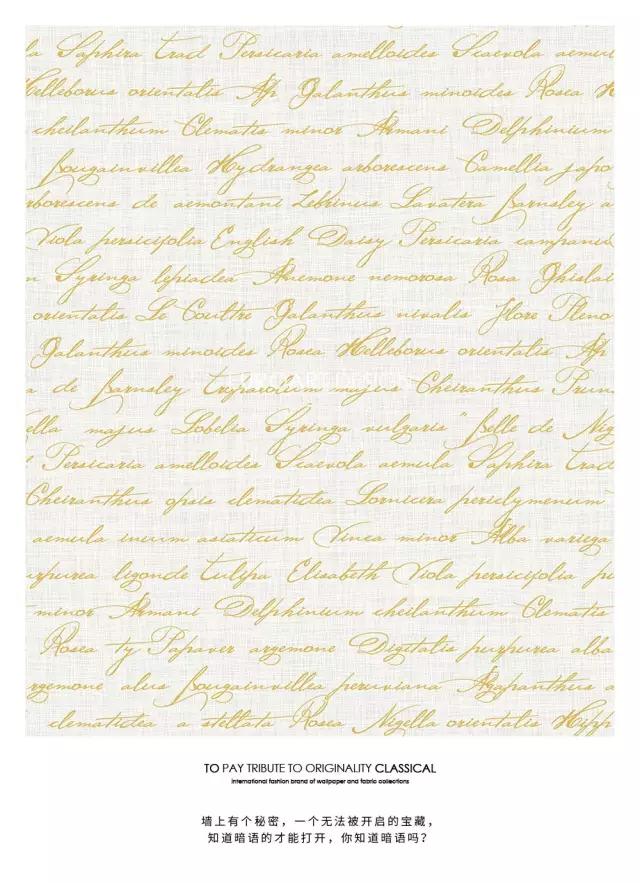 a Saphira trad Persicaria amelloides Scaevola aemu
Helleborus orientalis Ap Galanthus minoides Rosea H
cheilanthum Clematis minor Armani Delphinium
Bougainvillea Hydrangea arborescens Camellia japo
rborescens de aemontani Lebrinus Lavatera Barnsley a
Viola persicifolia English Daisy Persicaria campani
n Syringa lepiactea Anemone nemorosa Rosa Ghislai
orientalis Le Coultre Galanthus nivalis Flore Pleno
Galanthus minoides Rosea Helleborus orientalis Ap
a de Barnsley tropaeolum majus Cheiranthus Prun
ella majus Lobelia Syringa vulgaris "Belle de Nig
Persicaria amelloides Scaevola aemula Saphira trad
Cheiranthus opsis clematidea Lornicera periclymenum
aemula inum asiaticum Vinca minor Alba variega
urpurea ligonde tulipa Elisabeth Viola persicifolia pu
minor Armani Delphinium cheilanthum Clematis
Rosea ty Papaver argemone Digitalis purpurea alba
rgemone alus Bougainvillea peruviana Agapanthus a
clematidea a stellata Rosea Nigella orientalis Hipp
TO PAY TRIBUTE TO ORIGINALITY CLASSICAL
international fashion brand of wallpaper and fabric collections
墙上有个秘密，一个无法被开启的宝藏，
知道暗语的才能打开，你知道暗语吗？